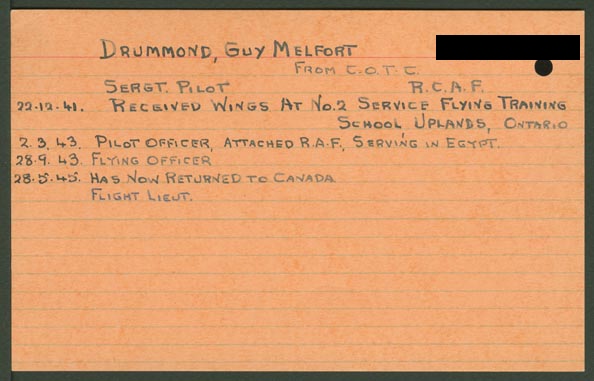 DRUMMOND, GUY MELFORT
FROM C.O.T.C.
SERGT. PILOT R.C.A.F.
22.12.41. RECEIVED WINGS AT NO.2 SERVICE FLYING TRAINING
SCHOOL UPLANDS, ONTARIO
2.3.43. PILOT OFFICER, ATTACHED R.A.F., SERVING IN EGYPT.
28.9.43. FLYING OFFICER
28.5.45. HAS NOW RETURNED TO CANADA
FLIGHT LIEUT.